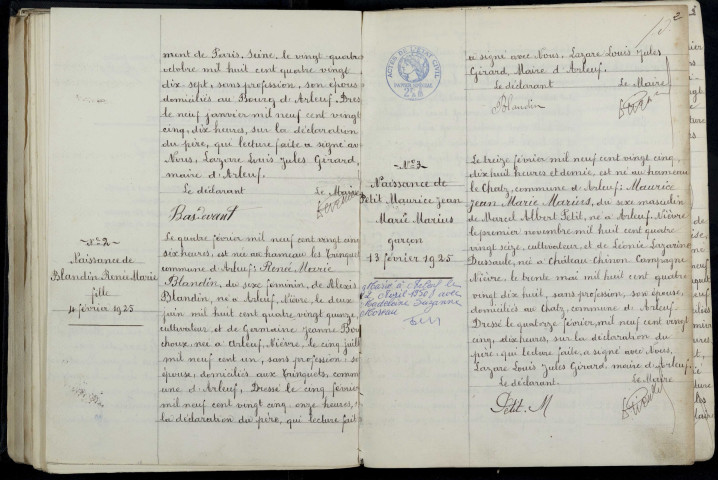 ment de Paris, Seine, le vingt quatre
octobre mil huit cent quatre vingt
dix-sept, sans profession, son épouse
domiciliés au Bourg d'Arleuf. Dressé
le neuf janvier mil neuf cent vingt
cinq, dix heures, sur la déclaration
du père, qui lecture faite a signé avec
Nous, Lazare Louis Jules Girard,
maire d'Arleuf.
Le déclarant Le Maire
N° 2
Naissance de
Blandin Renée Marie
fille
4 février 1925
Le quatre février mil neuf cent vingt cinq
six heures, est née au hameau les Trinquets
commune d'Arleuf: Renée Marie
Blandin, du sexe féminin, de Alexis
Blandin, né à Arleuf, Nièvre, le deux
juin mil huit cent quatre vingt quatorze
cultivateur et de Germaine Jeanne
choux, née à Arleuf, Nièvre, le cinq juillet
mil neuf cent un, sans profession: son
épouse, domiciliés aux Trinquets, commu
ne d'Arleuf. Dressé le cinq février
mil neuf cent vingt cinq: onze heures, sur
la déclaration du père, qui lecture faite
a signé avec Nous, Lazare Louis Jules
Girard, Maire d'Arleuf.
Le déclarant Le Maire
Blandin
ACTES DE L'ETAT CIVIL
N° 3
Naissance de
Petit Maurice Jean
Marie Marius
garçon
13 février 1925
Marié à
2 Avril 1950 avec
Madeleine Suzanne
Moreau
Le treize février mil neuf cent vingt cinq,
dix huit heures et demie, est né au hameau
le Chatz, commune d'Arleuf: Maurice
Jean Marie Marius, du sexe masculin
de Marcel Albert Petit, né à Arleuf, Nièvre
le premier novembre mil huit cent quatre
vingt seize, cultivateur et de Léonie Lazarine
Dussault, née à Château Chinon Campagne
Nièvre, le trente mai mil huit cent quatre
vingt dix huit, sans profession, son épouse,
domiciliés au Chatz, commune d'Arleuf.
Dressé le quatorze février, mil neuf cent vingt
cinq, dix heures, sur la déclaration du
père: qui lecture faite, a signé avec Nous,
Lazare Louis Jules Girard, maire d'Arleuf.
Le déclarant. Le Maire
Petit. M